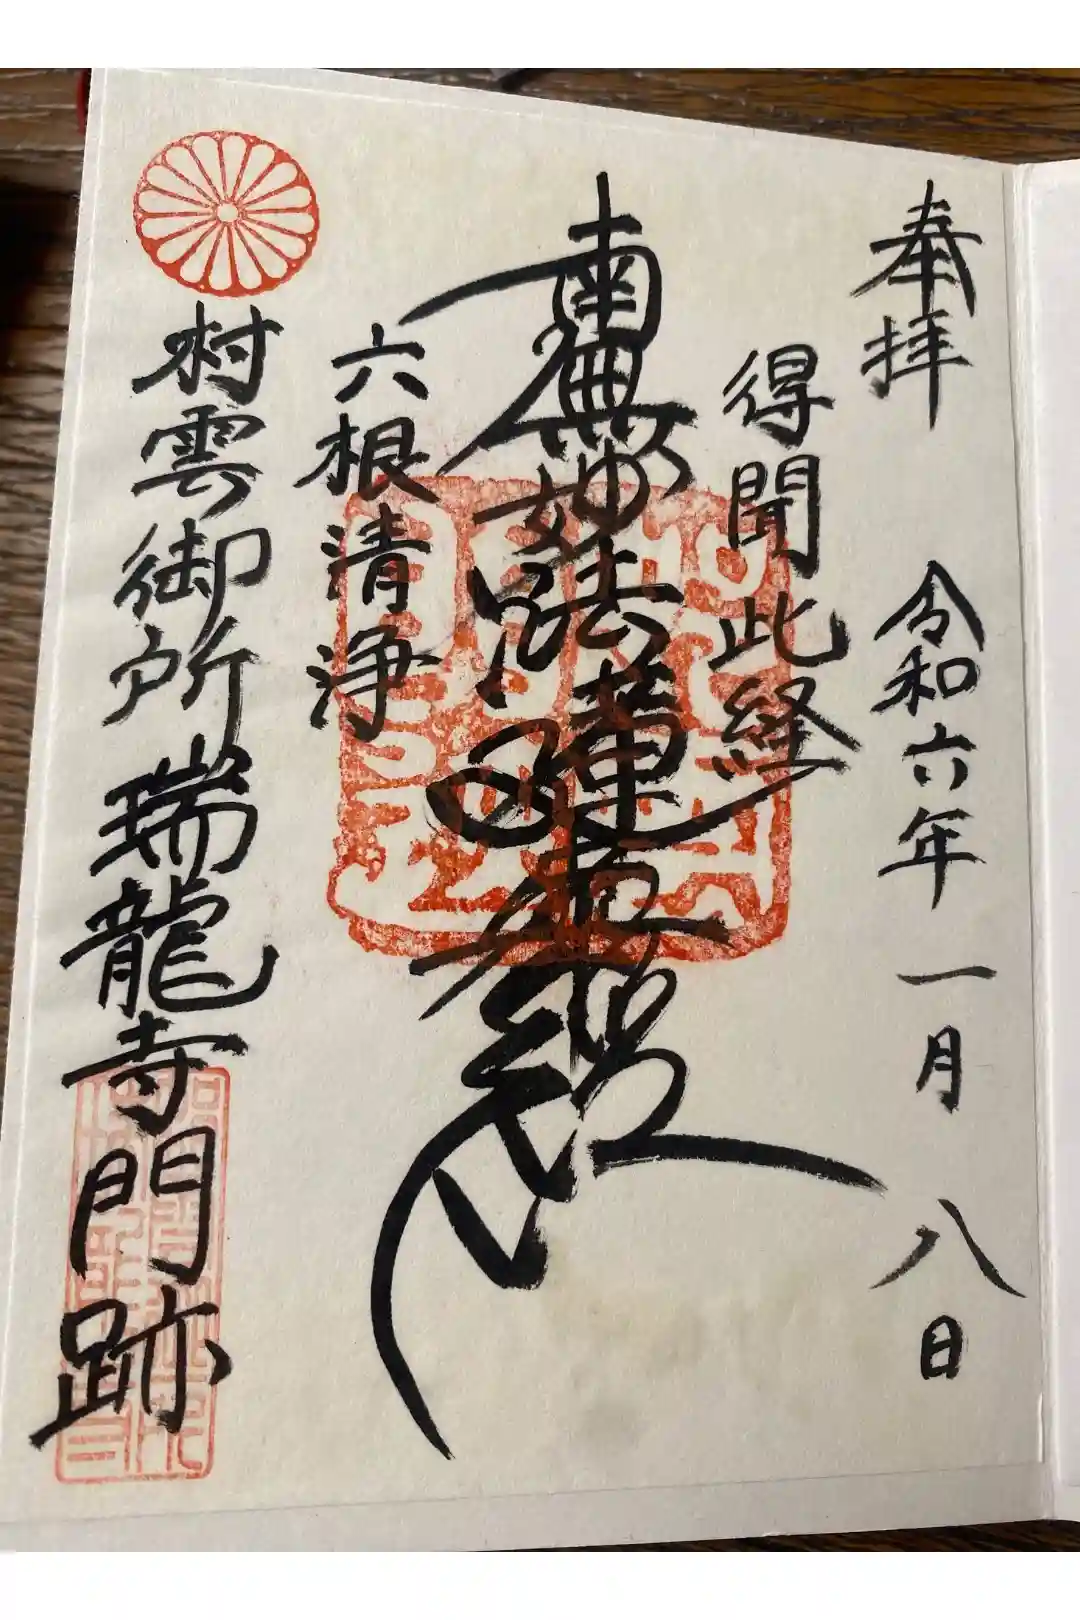 奉拝 令和六年一月八日
得聞此経
南無妙法蓮華経
六根清浄
村雲御所瑞龍寺門跡